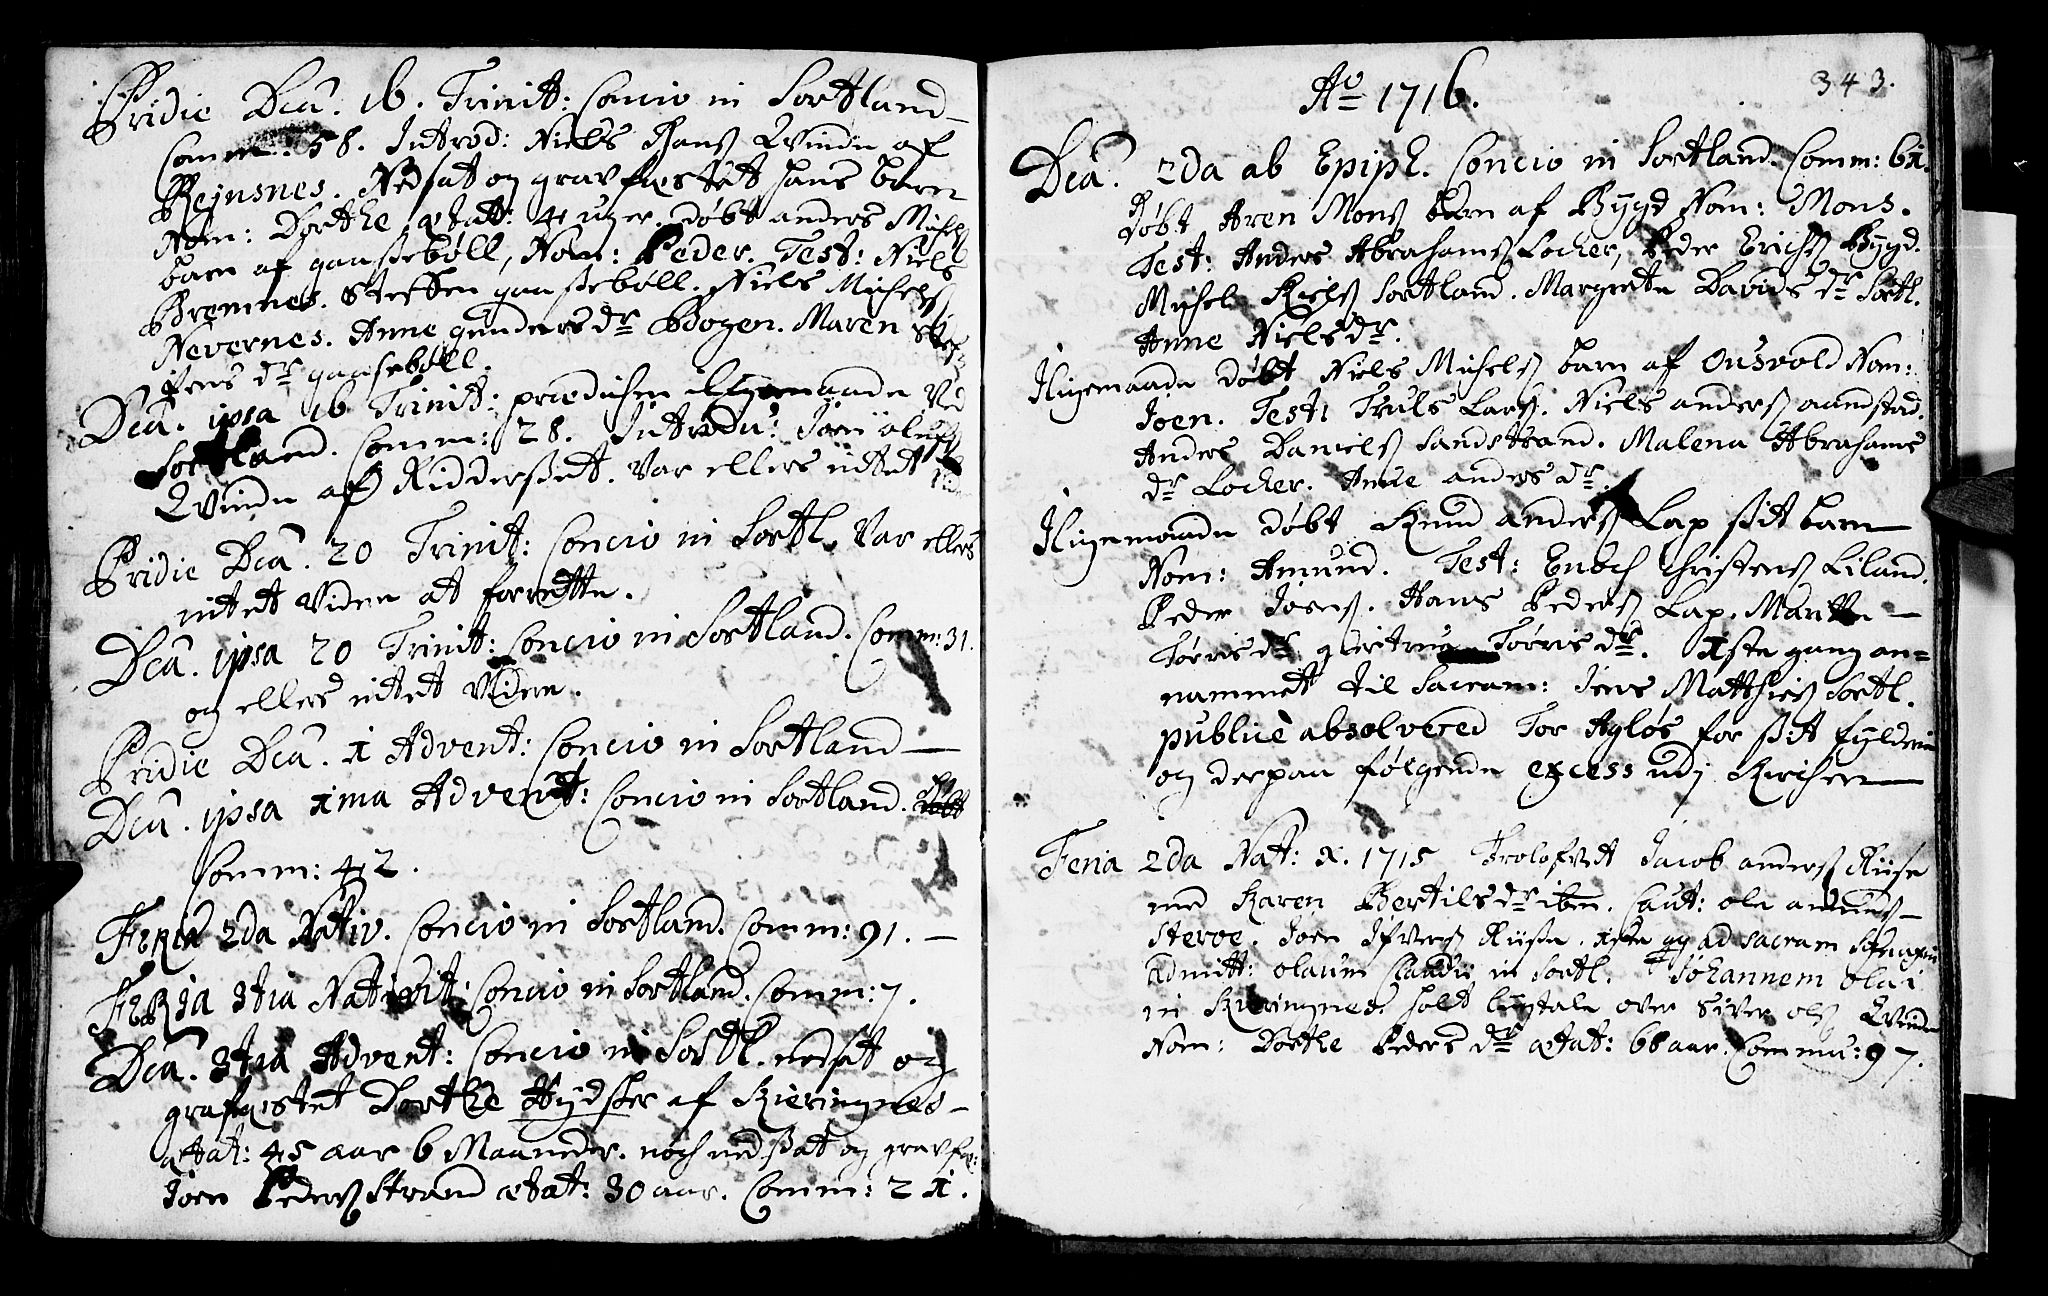 Pridie Dca. 16. Trinit: Concio in Sortland
Comm: 58. Introd: Niels Hanß Qvinde af
Reinsnes. Nedsat og gravfæstet hans barn
Nom: Dorthe ætat: 4 uger. døbt anders Michelß
barn af gaasseböll, Nom: Peder. Test: Niels
Bremnes. Steffen gaasseböll. Niels Michelß
Nevernes. Anne gunders dr Bogen. Maren Stef-
fens dr gaasebøll.
Dca. ipsa 16 Trinit: prædichen ved
Sortland. Comm: 28. Introdu: Joen oluffß
Qvinde af Ridderßet. Var ellers intet
Pridie Dca. 20 Trinit: Concio in Sortl. Var ellers
intet Videre at forrette.
Dca. ipsa 20 Trinit: Concio in Sortland. Comm: 31.
og ellers intet Videre.
Pridie Dca. 1 Advent: Concio in Sortland
Dca. ipsa 1ma Advent: Concio in Sortland.
Comm: 42.
Feria 2da Nativ. Concio in Sortland. Comm: 91.
Feria 3tia Nativit: Concio in Sortland. Comm: 7.
Dca. 3tia Advent: Concio in Sortl. nedsat og
grafæstet Dorthe af Kieringnes
ætat: 45 aar 6 Maaneder. noch nedßat og gravfæ:
Joen Pederß Strand ætat: 30 aar. Comm: 21.
343.
Ao 1716.
Dca. 2da ab Epiph. Concio in Sortland. Comm: 61.
Døbt Aren Monß barn af Bygd Nom: Mons.
Test: Anders Abrahamß Locher, Peder Erichß Bygd.
Michel Nielß Sortland. Margrete Davids dr Sortl.
Anne Niels dr.
Iligemaade døbt Niels Michelß barn af Ousvold Nom:
Joen. Test: Truls Larß. Niels anderß aanstad.
Anders Danielß Sandstrand. Malena Abrahams
dr Locher. Anne anders dr.
Iligemaade døbt Knud anderß Lap sit barn
Nom: Amund. Test: Enoch Christenß Liland.
Peder Joenß. Hans Pederß Lap. Maritte
Torris dr. Torris dr. 1ste gang an=
nammet til Sacram: Jens Matthiß Sortl.
publicè absolvered Tor Agløs for sit fylderie
og derpaa følgende excess udj Kirchen
Feria 2da Nat: X. 1715 Trolofvet Jacob anderß Riise
med Karen Bertils dr ibm. Caut: ole
Sterve. Joen Ifverß Riise. ad sacram
admitt: olaum Claudii in Sortl. Johannem Olai
in Kieringnes. holt ligtale over Siver olß Qvinde
Nom: Dorthe Peders dr ætat: 66 aar. Commu: 97.